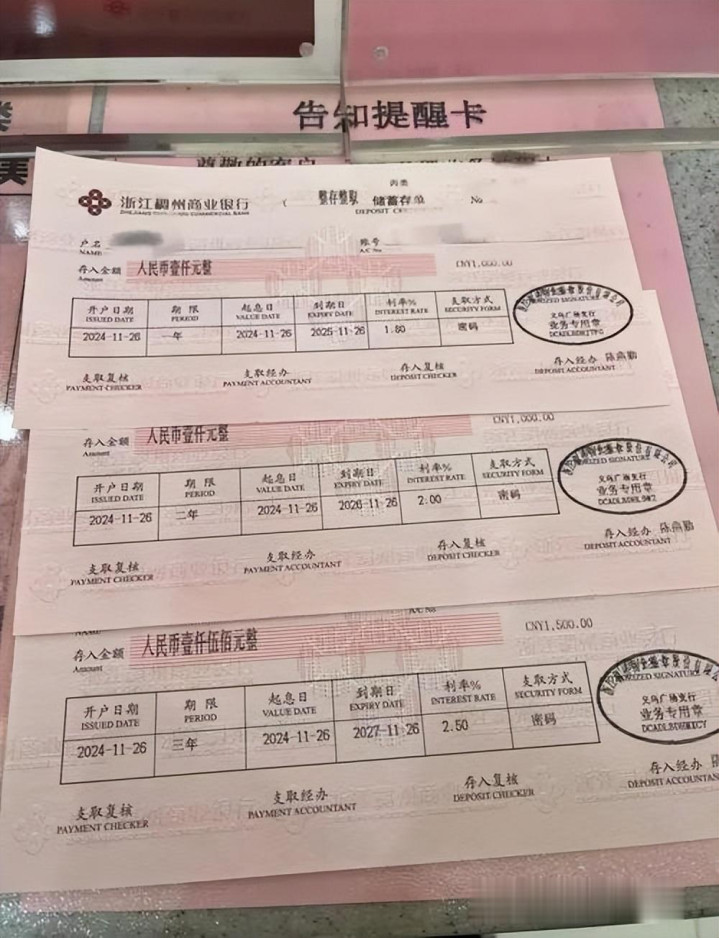 告知提醒卡
尊敬的客户
丙类
浙江稠州商业银行 ( 整存整取 储蓄存单 No
DEPOSIT
户名 账号
NAME A/C No
存入金额 人民币壹仟元整 CNY1,000.00
Amount
开户日期 期 限 起息日 到期日 利率% 支取方式
ISSUED DATE PERIOD VALUE DATE EXPIRY DATE INTEREST RATE SECURITY FORM
2024-11-26 一年 2024-11-26 2025-11-26 1.80 密码
义乌广场支行
业务专用章
支取复核 支取经办 存入复核 存入经办 陈燕勤
PAYMENT CHECKER PAYMENT ACCOUNTANT DEPOSIT CHECKER DEPOSIT ACCOUNTANT
存入金额 人民币壹仟元整 CNY1,000.00
Amount
开户日期 期 限 起息日 到期日 利率% 支取方式
ISSUED DATE PERIOD VALUE DATE EXPIRY DATE INTEREST RATE SECURITY FORM
2024-11-26 二年 2024-11-26 2026-11-26 2.00 密码
义乌广场支行
业务专用章
支取复核 支取经办 存入复核 存入经办 陈燕勤
PAYMENT CHECKER PAYMENT ACCOUNTANT DEPOSIT CHECKER DEPOSIT ACCOUNTANT
NAME A/C No
存入金额 人民币壹仟伍佰元整 CNY1,500.00
Amount
开户日期 期 限 起息日 到期日 利率% 支取方式
ISSUED DATE PERIOD VALUE DATE EXPIRY DATE INTEREST RATE SECURITY FORM
2024-11-26 三年 2024-11-26 2027-11-26 2.50 密码
义乌广场支行
业务专用章
支取复核 支取经办 存入复核 存入经办 陈
PAYMENT CHECKER PAYMENT ACCOUNTANT DEPOSIT CHECKER DEPOSIT ACCOUNTAN